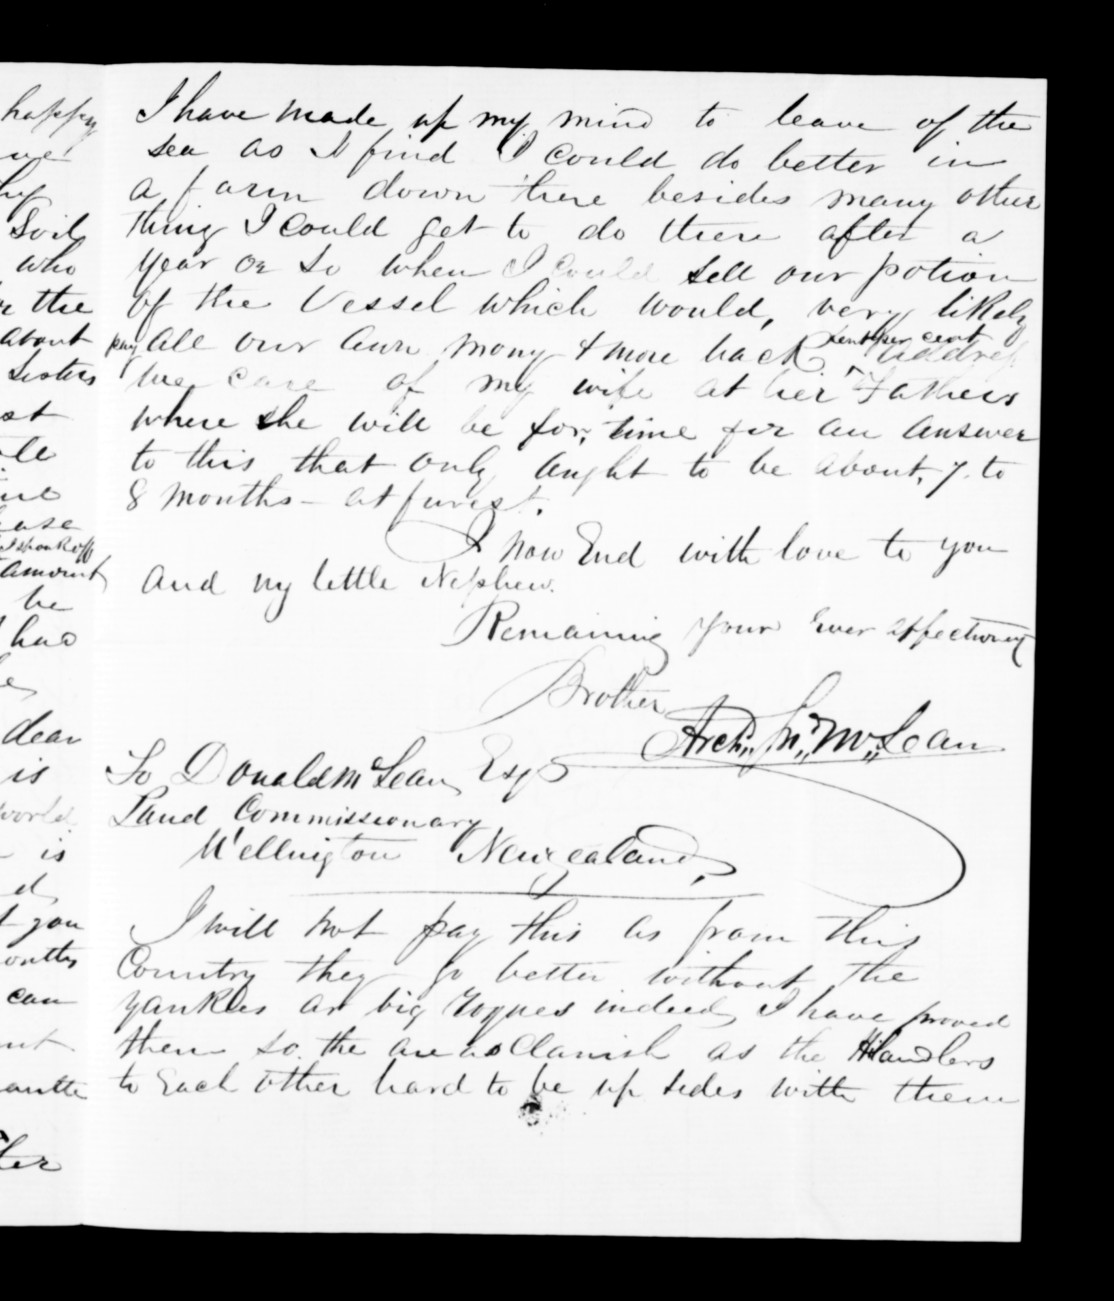 happy
we
Soil
who
the
about
Sisters
amount
be
had
dear
is
world
is
you
can
I have made up my mind to leave of the
sea as I find I could do better in
a farm down there besides many other
thing I could get to do there after a
year or so when I could sell our potion
of the Vessel which would, very likely
pay all our awn mony & more back ten per cent address
me care of my wife at her Fathers
where she will be for, time for an answer
to this that only aught to be about, 7 to
8 months - at furest.
I now End with love to you
and my little Nephew.
Remaining your Ever affectionet
Brother
Archd. Jn. McLean
To Donald McLean Esqr
Land Commissionary
Wellington Newzealand,
I will not pay this as from this
Country they go better without the
yankees ar big rogues indeed I have proved
them so. the are as Clanish as the Hilandlers
to Each other hard to be up sides with them